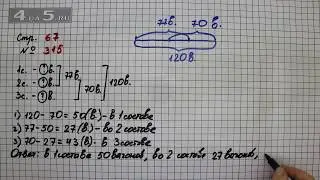 4GDZ.RU
Стр. 67
№ 315
77в. 70в.
120в.
1с. - ?в.
2с. - ?в.
3с. - ?в.
77в.
70в.
120в.
1) 120-70=50(в.)-в 1 составе
2) 77-50=27(в)-во 2 составе
3) 70-27=43(в)-в 3 составе
Ответ: в 1 составе 50 вагонов, во 2 составе 27 вагонов,